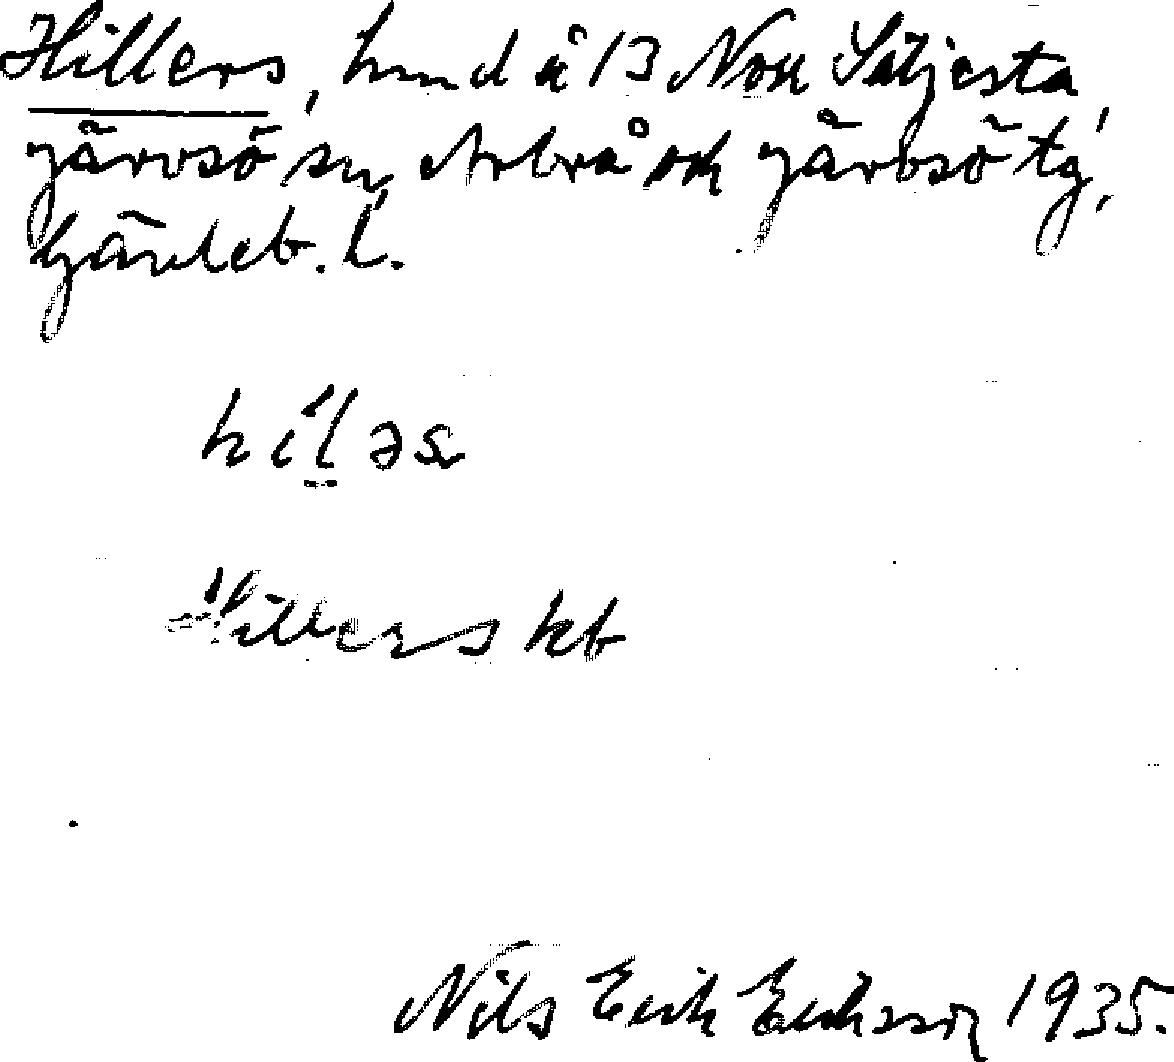 Hillers, hmd å 13 Norr Sätjesta,
Järvsö sn, Arbrå och Järvsö tg,
Gävleb. l.
hil̤əs
Hillers kb
Nils Erik Eriksson 1935.